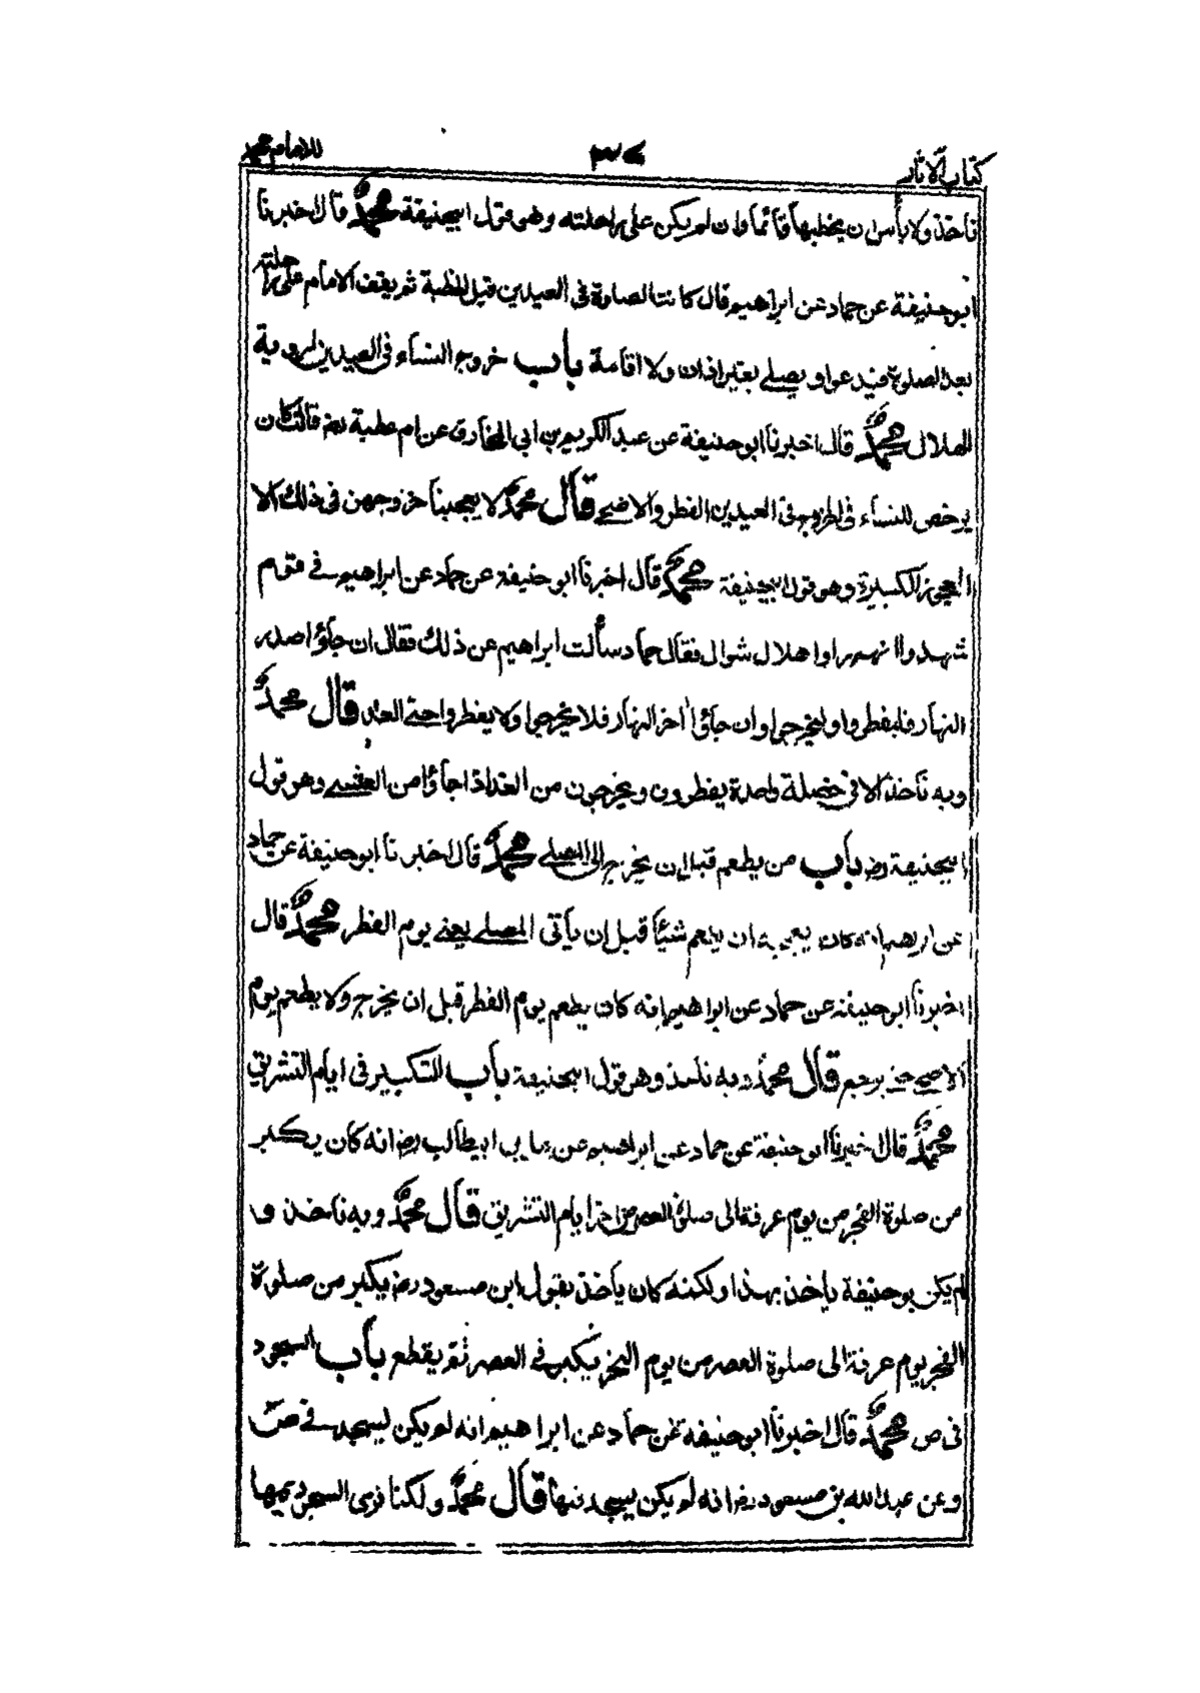 كتاب الآثار ٣٧ للامام محمد
ناخذ ولا بأس ان يخطبها قائما وان لم يكن على راحلته وهو قول ابيحنيفة محمدٌ قال اخبرنا
ابو حنيفة عن حماد عن ابراهيم قال كانت الصلوة في العيدين قبل الخطبة ثم يقف الامام على راحلته
بعد الصلوة فيدعو او يصلي بغير اذان ولا اقامة باب خروج النساء في العيدين لروية
الهلال محمدٌ قال اخبرنا ابو حنيفة عن عبد الكريم بن ابي المخارق عن ام عطية رضـ قالت كان
يرخص للنساء في الخروج في العيدين الفطر والاضحى قال محمدٌ لا يعجبنا خروجهن في ذلك الا
العجوز الكبيرة وهو قول ابيحنيفة محمدٌ قال اخبرنا ابو حنيفة عن حماد عن ابراهيم في قوم
شهدوا انهم راوا هلال شوال فقال حماد سألت ابراهيم عن ذلك فقال ان جاؤا صدر
النهار فليفطروا وليخرجوا وان جاؤا اخر النهار فلا يخرجوا ولا يفطروا حتى الغد قال محمدٌ
وبه ناخذ الا في خصلة واحدة يفطرون ويخرجون من الغد اذا جاؤا من العشي وهو قول
ابيحنيفة رضـ باب من يطعم قبل ان يخرج الى المصلى محمدٌ قال اخبرنا ابو حنيفة عن حماد
عن ابراهيم انه كان يعجبه ان يطعم شيئا قبل ان يأتى المصلى يعني يوم الفطر محمدٌ قال
اخبرنا ابو حنيفة عن حماد عن ابراهيم انه كان يطعم يوم الفطر قبل ان يخرج ولا يطعم يوم
الاضحى حتى يرجع قال محمدٌ وبه ناخذ وهو قول ابيحنيفة باب التكبير في ايام التشريق
محمدٌ قال اخبرنا ابو حنيفة عن حماد عن ابراهيم عن علي بن ابيطالب رضـ انه كان يكبر
من صلوة الفجر من يوم عرفة الى صلوة العصر من اخر ايام التشريق قال محمدٌ وبه ناخذ و
لم يكن ابو حنيفة ياخذ بهذا ولكنه كان يأخذ بقول ابن مسعود رضـ يكبر من صلوة
الفجر يوم عرفة الى صلوة العصر من يوم النحر يكبر في العصر ثم يقطع باب السجود
في ص محمدٌ قال اخبرنا ابو حنيفة عن حماد عن ابراهيم انه لم يكن ليسجد في ص
وعن عبد الله بن مسعود رضـ انه لم يكن يسجد فيها قال محمدٌ ولكنا نرى السجود فيها